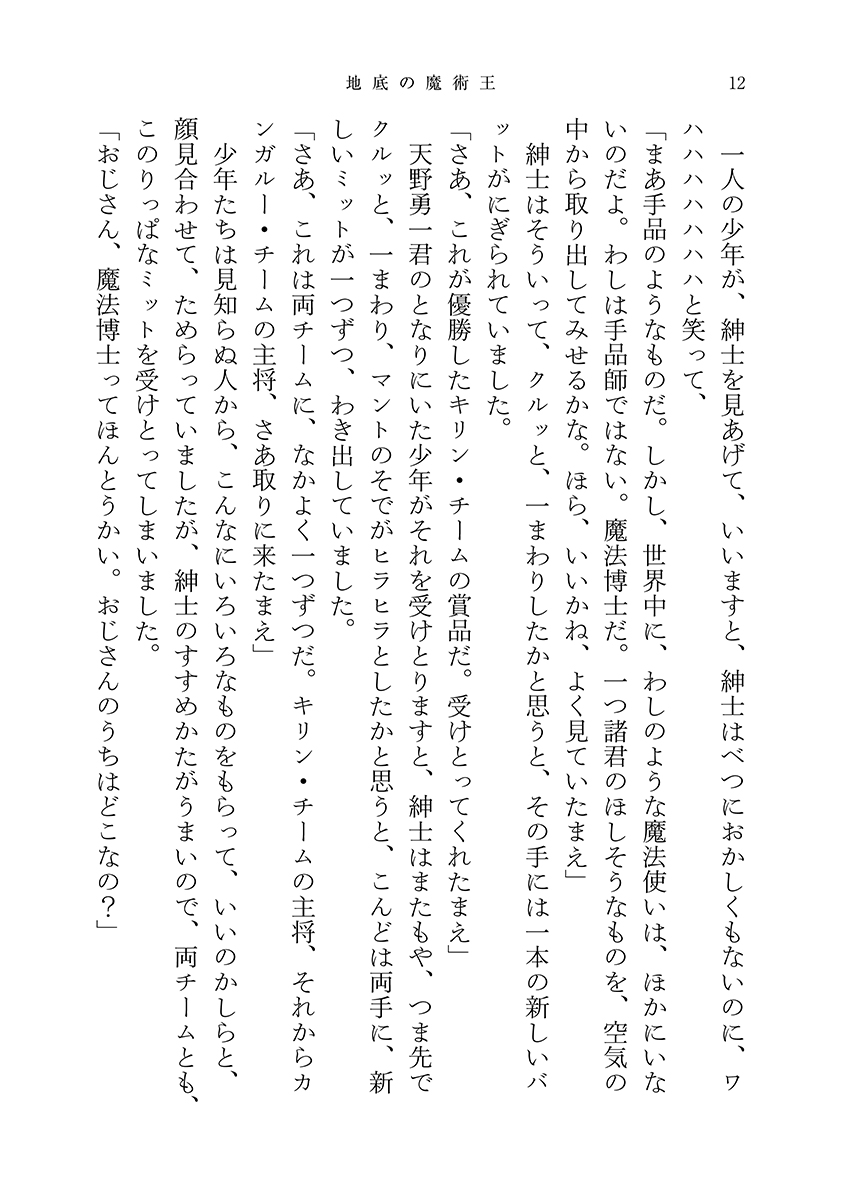 地底の魔術王
12
　一人の少年が、紳士を見あげて、いいますと、紳士はべつにおかしくもないのに、ワ
ハハハハハハハと笑って、
「まあ手品のようなものだ。しかし、世界中に、わしのような魔法使いは、ほかにいな
いのだよ。わしは手品師ではない。魔法博士だ。一つ諸君のほしそうなものを、空気の
中から取り出してみせるかな。ほら、いいかね、よく見ていたまえ」
　紳士はそういって、クルッと、一まわりしたかと思うと、その手には一本の新しいバ
ットがにぎられていました。
「さあ、これが優勝したキリン・チームの賞品だ。受けとってくれたまえ」
　天野勇一君のとなりにいた少年がそれを受けとりますと、紳士はまたもや、つま先で
クルッと、一まわり、マントのそでがヒラヒラとしたかと思うと、こんどは両手に、新
しいミットが一つずつ、わき出していました。
「さあ、これは両チームに、なかよく一つずつだ。キリン・チームの主将、それからカ
ンガルー・チームの主将、さあ取りに来たまえ」
　少年たちは見知らぬ人から、こんなにいろいろなものをもらって、いいのかしらと、
顔見合わせて、ためらっていましたが、紳士のすすめかたがうまいので、両チームとも、
このりっぱなミットを受けとってしまいました。
「おじさん、魔法博士ってほんとうかい。おじさんのうちはどこなの？」